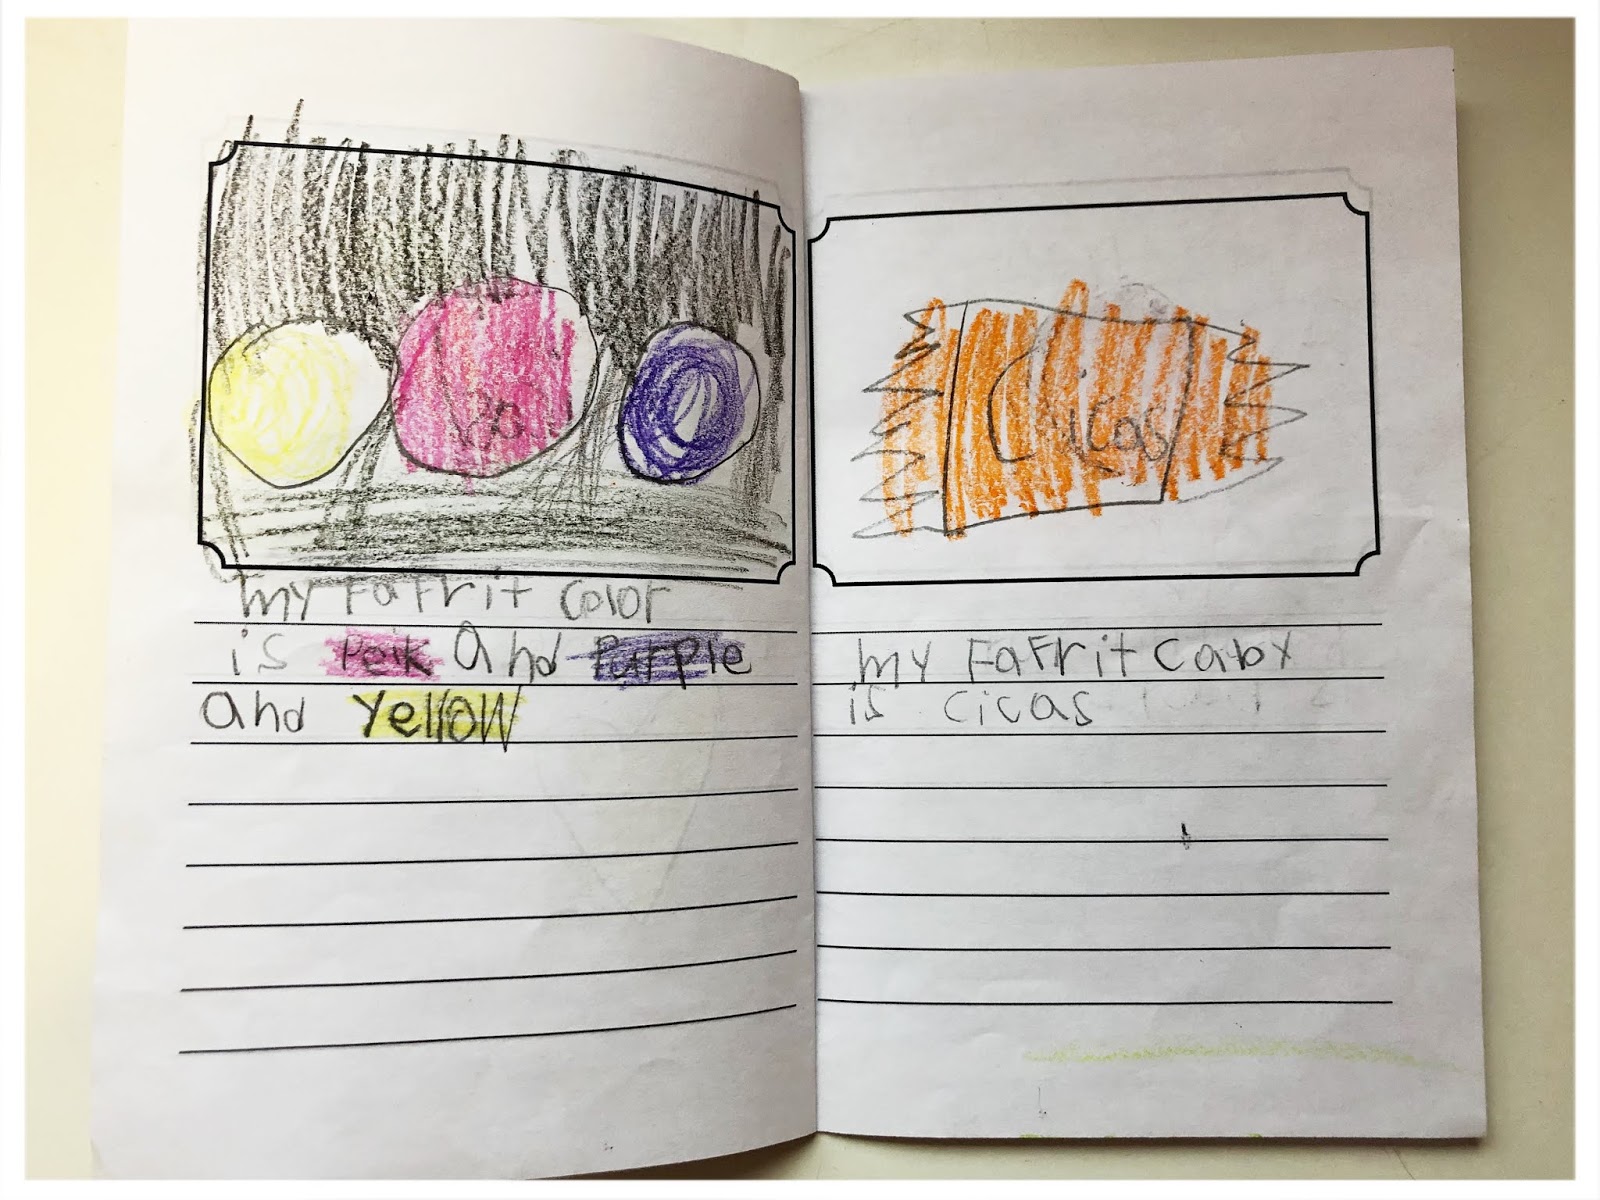 my FaFrit color
is Peik and Purple
and Yellow
Cicas
my FaFrit caby
is cicas